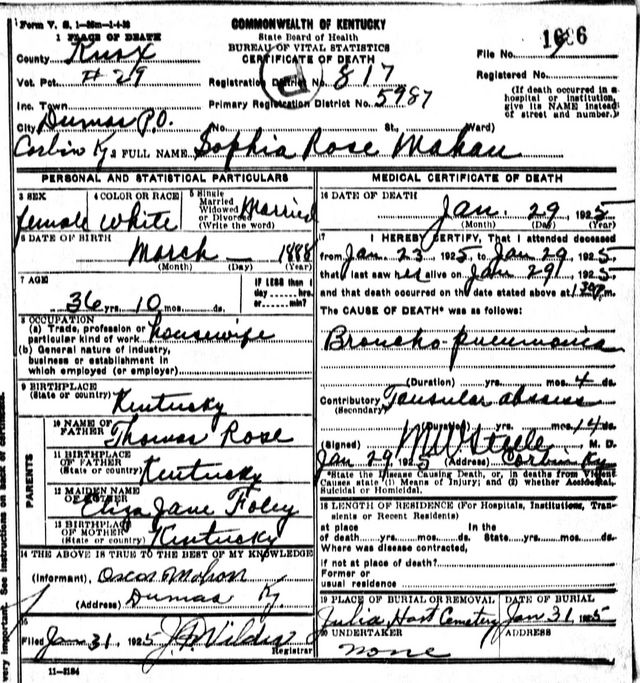 Form V. S. 1-35m-1-4-23
COMMONWEALTH OF KENTUCKY
State Board of Health
BUREAU OF VITAL STATISTICS
CERTIFICATE OF DEATH
1 PLACE OF DEATH
County Knox
File No.
Vot. Pct. #29
Registration District No. 817
Registered No.
Inc. Town
Primary Registration District No. 5987
(If death occurred in a hospital or institution, give its NAME instead of street and number.)
City Dumas P.O. No. St., Ward)
Corbin Ky. 2 FULL NAME Sophia Rose Mahan
PERSONAL AND STATISTICAL PARTICULARS
3 SEX
female
4 COLOR OR RACE
White
5 Single
Married
Widowed
or Divorced
(Write the word)
Married
6 DATE OF BIRTH
March — 1888
(Month) (Day) (Year)
7 AGE
36 yrs. 10 mos. ds.
IF LESS than 1
day hrs.
or min?
8 OCCUPATION
(a) Trade, profession or
particular kind of work housewife
(b) General nature of industry,
business or establishment in
which employed (or employer)
9 BIRTHPLACE
(State or country)
Kentucky
PARENTS
10 NAME OF
FATHER
Thomas Rose
11 BIRTHPLACE
OF FATHER
(State or country)
Kentucky
12 MAIDEN NAME
OF MOTHER
Eliza Jane Foley
13 BIRTHPLACE
OF MOTHER
(State or country)
Kentucky
14 THE ABOVE IS TRUE TO THE BEST OF MY KNOWLEDGE
(Informant) Oscar
(Address) Dumas Ky.
15
Filed Jan 31 1925
Registrar
11-3184
MEDICAL CERTIFICATE OF DEATH
16 DATE OF DEATH
Jan. 29 1925
(Month) (Day) (Year)
17 I HEREBY CERTIFY, That I attended deceased
from Jan 23 1925 to Jan 29 1925
that I last saw her alive on Jan 29 1925
and that death occurred on the date stated above at m.
The CAUSE OF DEATH* was as follows:
Broncho-pneumonia
(Duration) yrs. mos. 4 ds.
Contributory
(Secondary)
Tonsular abscess
(Duration) yrs. mos. 14 ds.
(Signed) M W Steele M. D.
Jan 29 1925 (Address) Corbin Ky
*State the Disease Causing Death, or, in deaths from Violent
Causes state (1) Means of Injury; and (2) whether Accidental,
Suicidal or Homicidal.
18 LENGTH OF RESIDENCE (For Hospitals, Institutions, Transients or Recent Residents)
at place In the
of death yrs. mos. ds. State yrs. mos. ds.
Where was disease contracted,
if not at place of death?
Former or
usual residence
19 PLACE OF BURIAL OR REMOVAL
Julia Hart Cemetery
DATE OF BURIAL
Jan 31 1925
20 UNDERTAKER
none
ADDRESS
very important. See instructions on back of certificate.